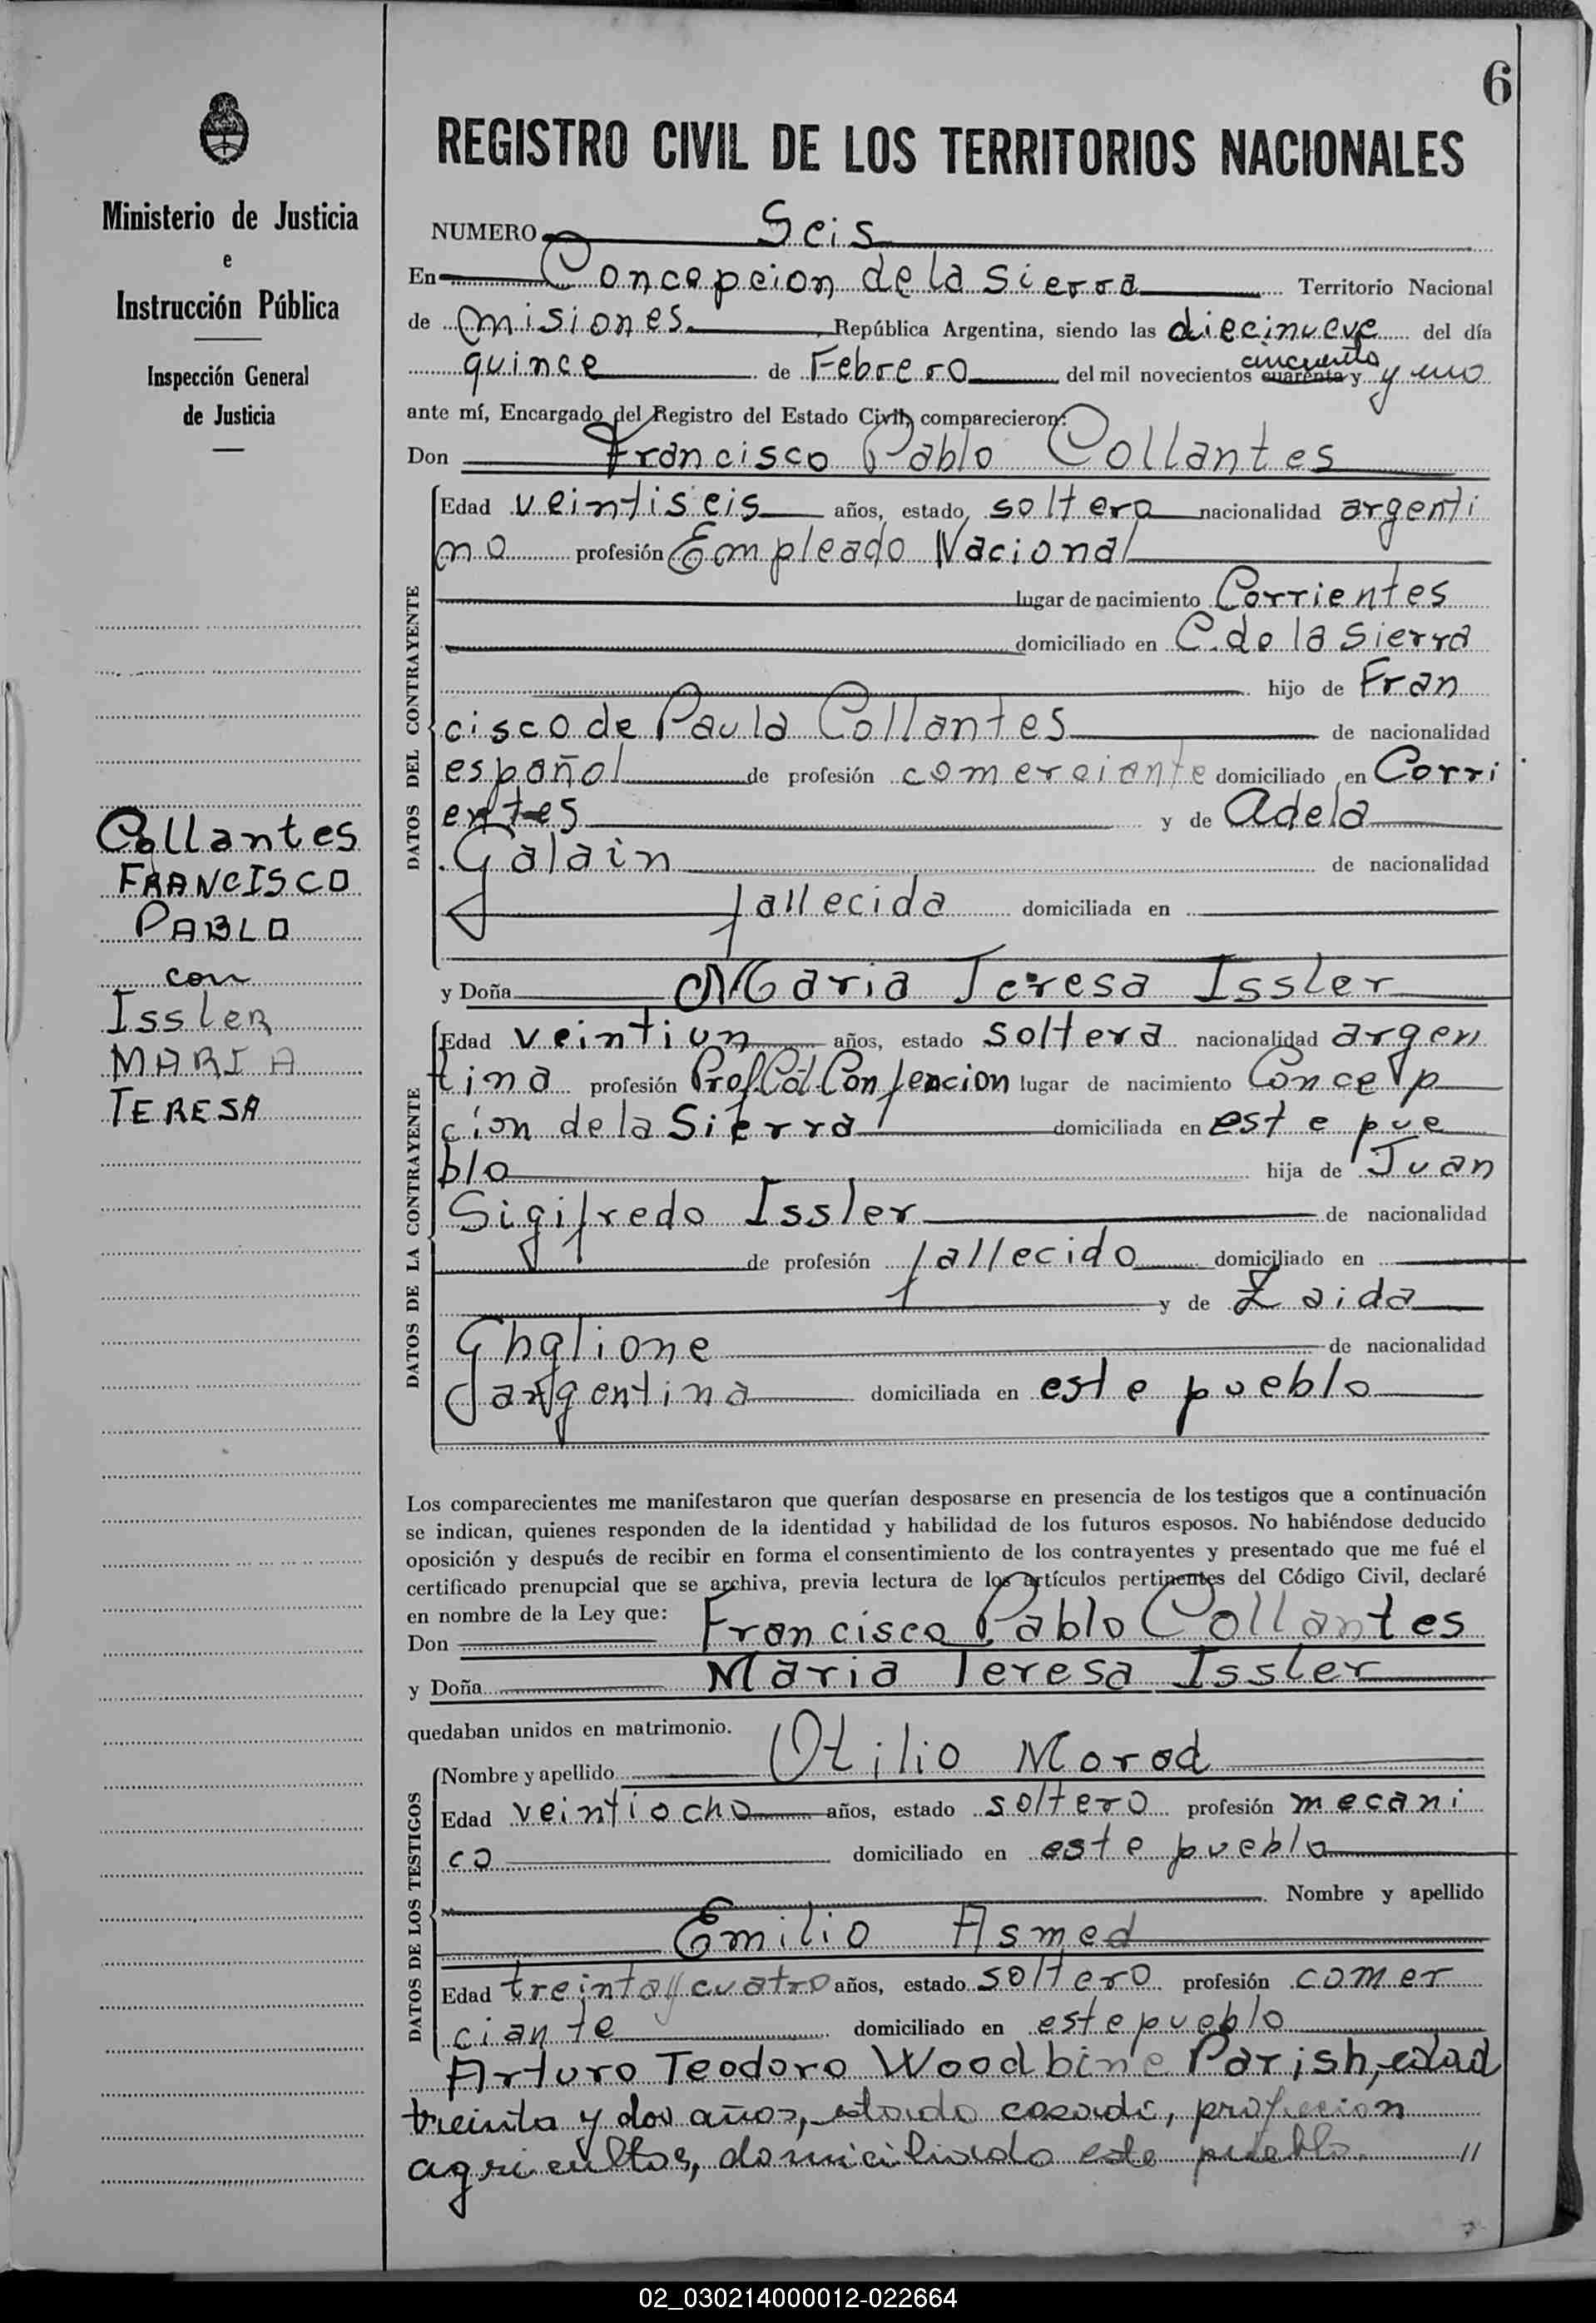 6
REGISTRO CIVIL DE LOS TERRITORIOS NACIONALES
Ministerio de Justicia
e
Instrucción Pública
Inspección General
de Justicia
NUMERO Seis
En Concepcion de la Sierra Territorio Nacional
de Misiones, República Argentina, siendo las diecinueve del día
quince de Febrero del mil novecientos cuarenta y cincuenta y uno
ante mí, Encargado del Registro del Estado Civil, comparecieron:
Don Francisco Pablo Collantes
DATOS DEL CONTRAYENTE
Edad veintiseis años, estado soltero nacionalidad argenti
no profesión Empleado Nacional
lugar de nacimiento Corrientes
domiciliado en C. de la Sierra
hijo de Fran
cisco de Paula Collantes de nacionalidad
español de profesión comerciante domiciliado en Corri
entes y de Adela
Galain de nacionalidad
fallecida domiciliada en
Collantes
FRANCISCO
PABLO
con
IsslER
MARIA
TERESA
y Doña Maria Teresa Issler
DATOS DE LA CONTRAYENTE
Edad veintiun años, estado soltera nacionalidad argen
tina profesión Prof. lugar de nacimiento Concep
cion de la Sierra domiciliada en este pue
blo hija de Juan
Sigifredo Issler de nacionalidad
de profesión fallecido domiciliado en
y de Zaida
Ghglione de nacionalidad
argentina domiciliada en este pueblo
Los comparecientes me manifestaron que querían desposarse en presencia de los testigos que a continuación
se indican, quienes responden de la identidad y habilidad de los futuros esposos. No habiéndose deducido
oposición y después de recibir en forma el consentimiento de los contrayentes y presentado que me fué el
certificado prenupcial que se archiva, previa lectura de los artículos pertinentes del Código Civil, declaré
en nombre de la Ley que:
Don Francisco Pablo Collantes
y Doña Maria Teresa Issler
quedaban unidos en matrimonio.
DATOS DE LOS TESTIGOS
Nombre y apellido Otilio Morad
Edad veintiocho años, estado soltero profesión mecani
co domiciliado en este pueblo
Nombre y apellido
Emilio Asmed
Edad treinta y cuatro años, estado soltero profesión comer
ciante domiciliado en este pueblo
Arturo Teodoro Woodbine Parish, edad
treinta y dos años, estado casado, profesion
agricultor, domiciliado este pueblo. //
02_030214000012-022664